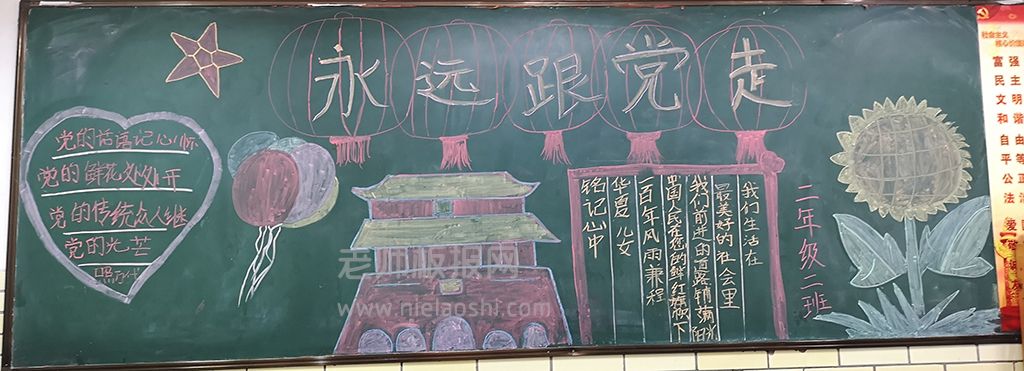 永远跟党走
党的话语记心怀
党的鲜花处处开
党的传统众人继
党的光芒
照万代
我们生活在
最美好的社会里
我们前进的道路铺满
中国人民在您的鲜红旗帜下
一百年风雨兼程
华夏儿女
铭记心中
二年级二班
社会主义
核心价值
富强
民主
文明
和谐
自由
平等
公正
法
爱
老师板报网
www.nielaoshi.com